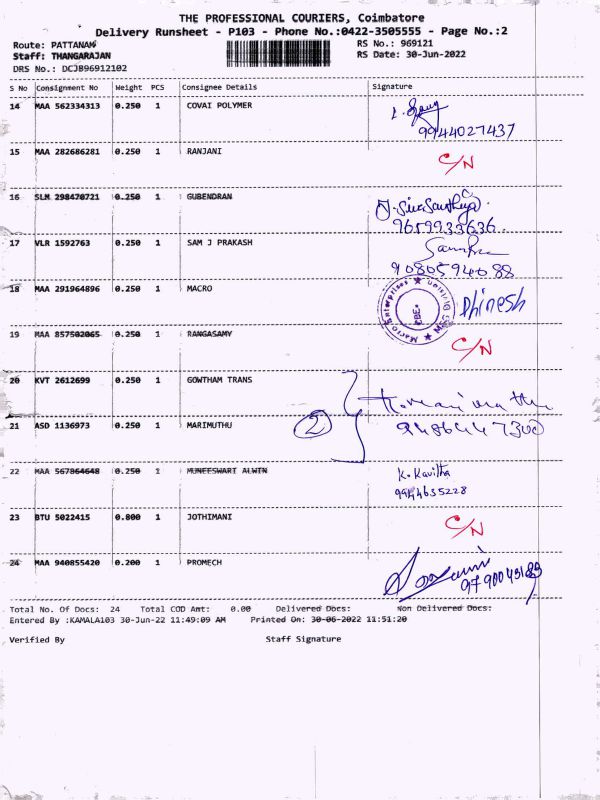 THE PROFESSIONAL COURIERS, Coimbatore
Delivery Runsheet - P103 - Phone No.:0422-3505555 - Page No.:2
Route: PATTANAM RS No.: 969121
Staff: THANGARAJAN RS Date: 30-Jun-2022
DRS No.: DCJB96912102
S No Consignment No Weight PCS Consignee Details Signature
14 MAA 562334313 0.250 1 COVAI POLYMER
9944027437
15 MAA 282686281 0.250 1 RANJANI C/N
16 SLM 298470721 0.250 1 GUBENDRAN
9659933636
17 VLR 1592763 0.250 1 SAM J PRAKASH
9080594088
18 MAA 291964896 0.250 1 MACRO Macro Enterprises CBE. Dhinesh
19 MAA 857502065 0.250 1 RANGASAMY C/N
20 KVT 2612699 0.250 1 GOWTHAM TRANS
21 ASD 1136973 0.250 1 MARIMUTHU 2
22 MAA 567864648 0.250 1 MUNEESWART ALWIN K. Kavitha
9944635228
23 BTU 5022415 0.800 1 JOTHIMANI C/N
24 MAA 940855420 0.200 1 PROMECH
Total No. Of Docs: 24 Total COD Amt: 0.00 Delivered Docs: Non Delivered Docs:
Entered By :KAMALA103 30-Jun-22 11:49:09 AM Printed On: 30-06-2022 11:51:20
Verified By Staff Signature